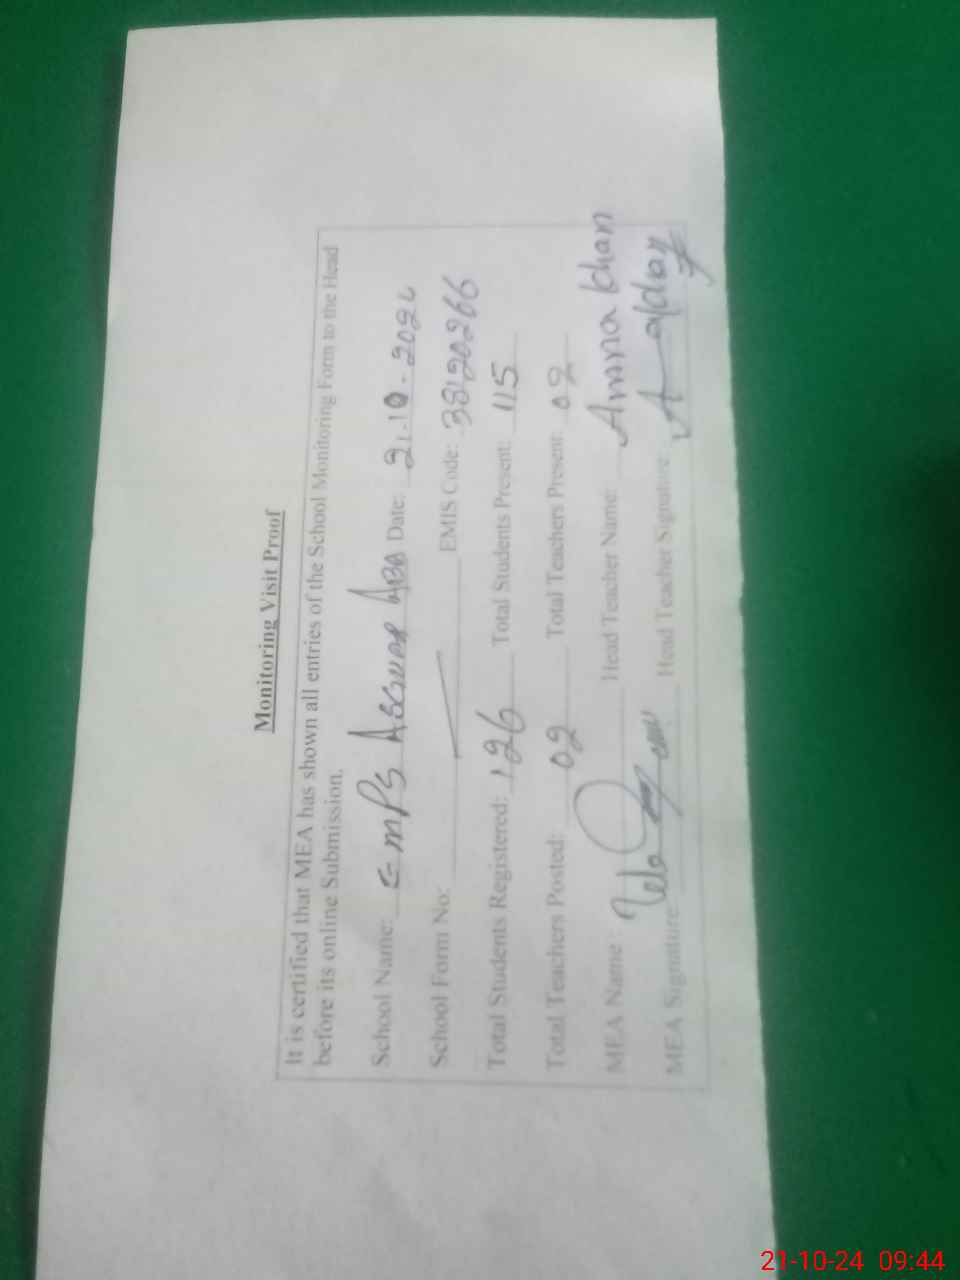 Monitoring Visit Proof
It is certified that MEA has shown all entries of the School Monitoring Form to the Head
before its online Submission.
School Name: GMPS Asghar ABA Date: 21.10-202
School Form No: EMIS Code: 38120266
Total Students Registered: 126 Total Students Present: 115
Total Teachers Posted: 02 Total Teachers Present: 02
MEA Name: Head Teacher Name: Amna Khan
MEA Signature Head Teacher Signature:
21-10-24 09:44